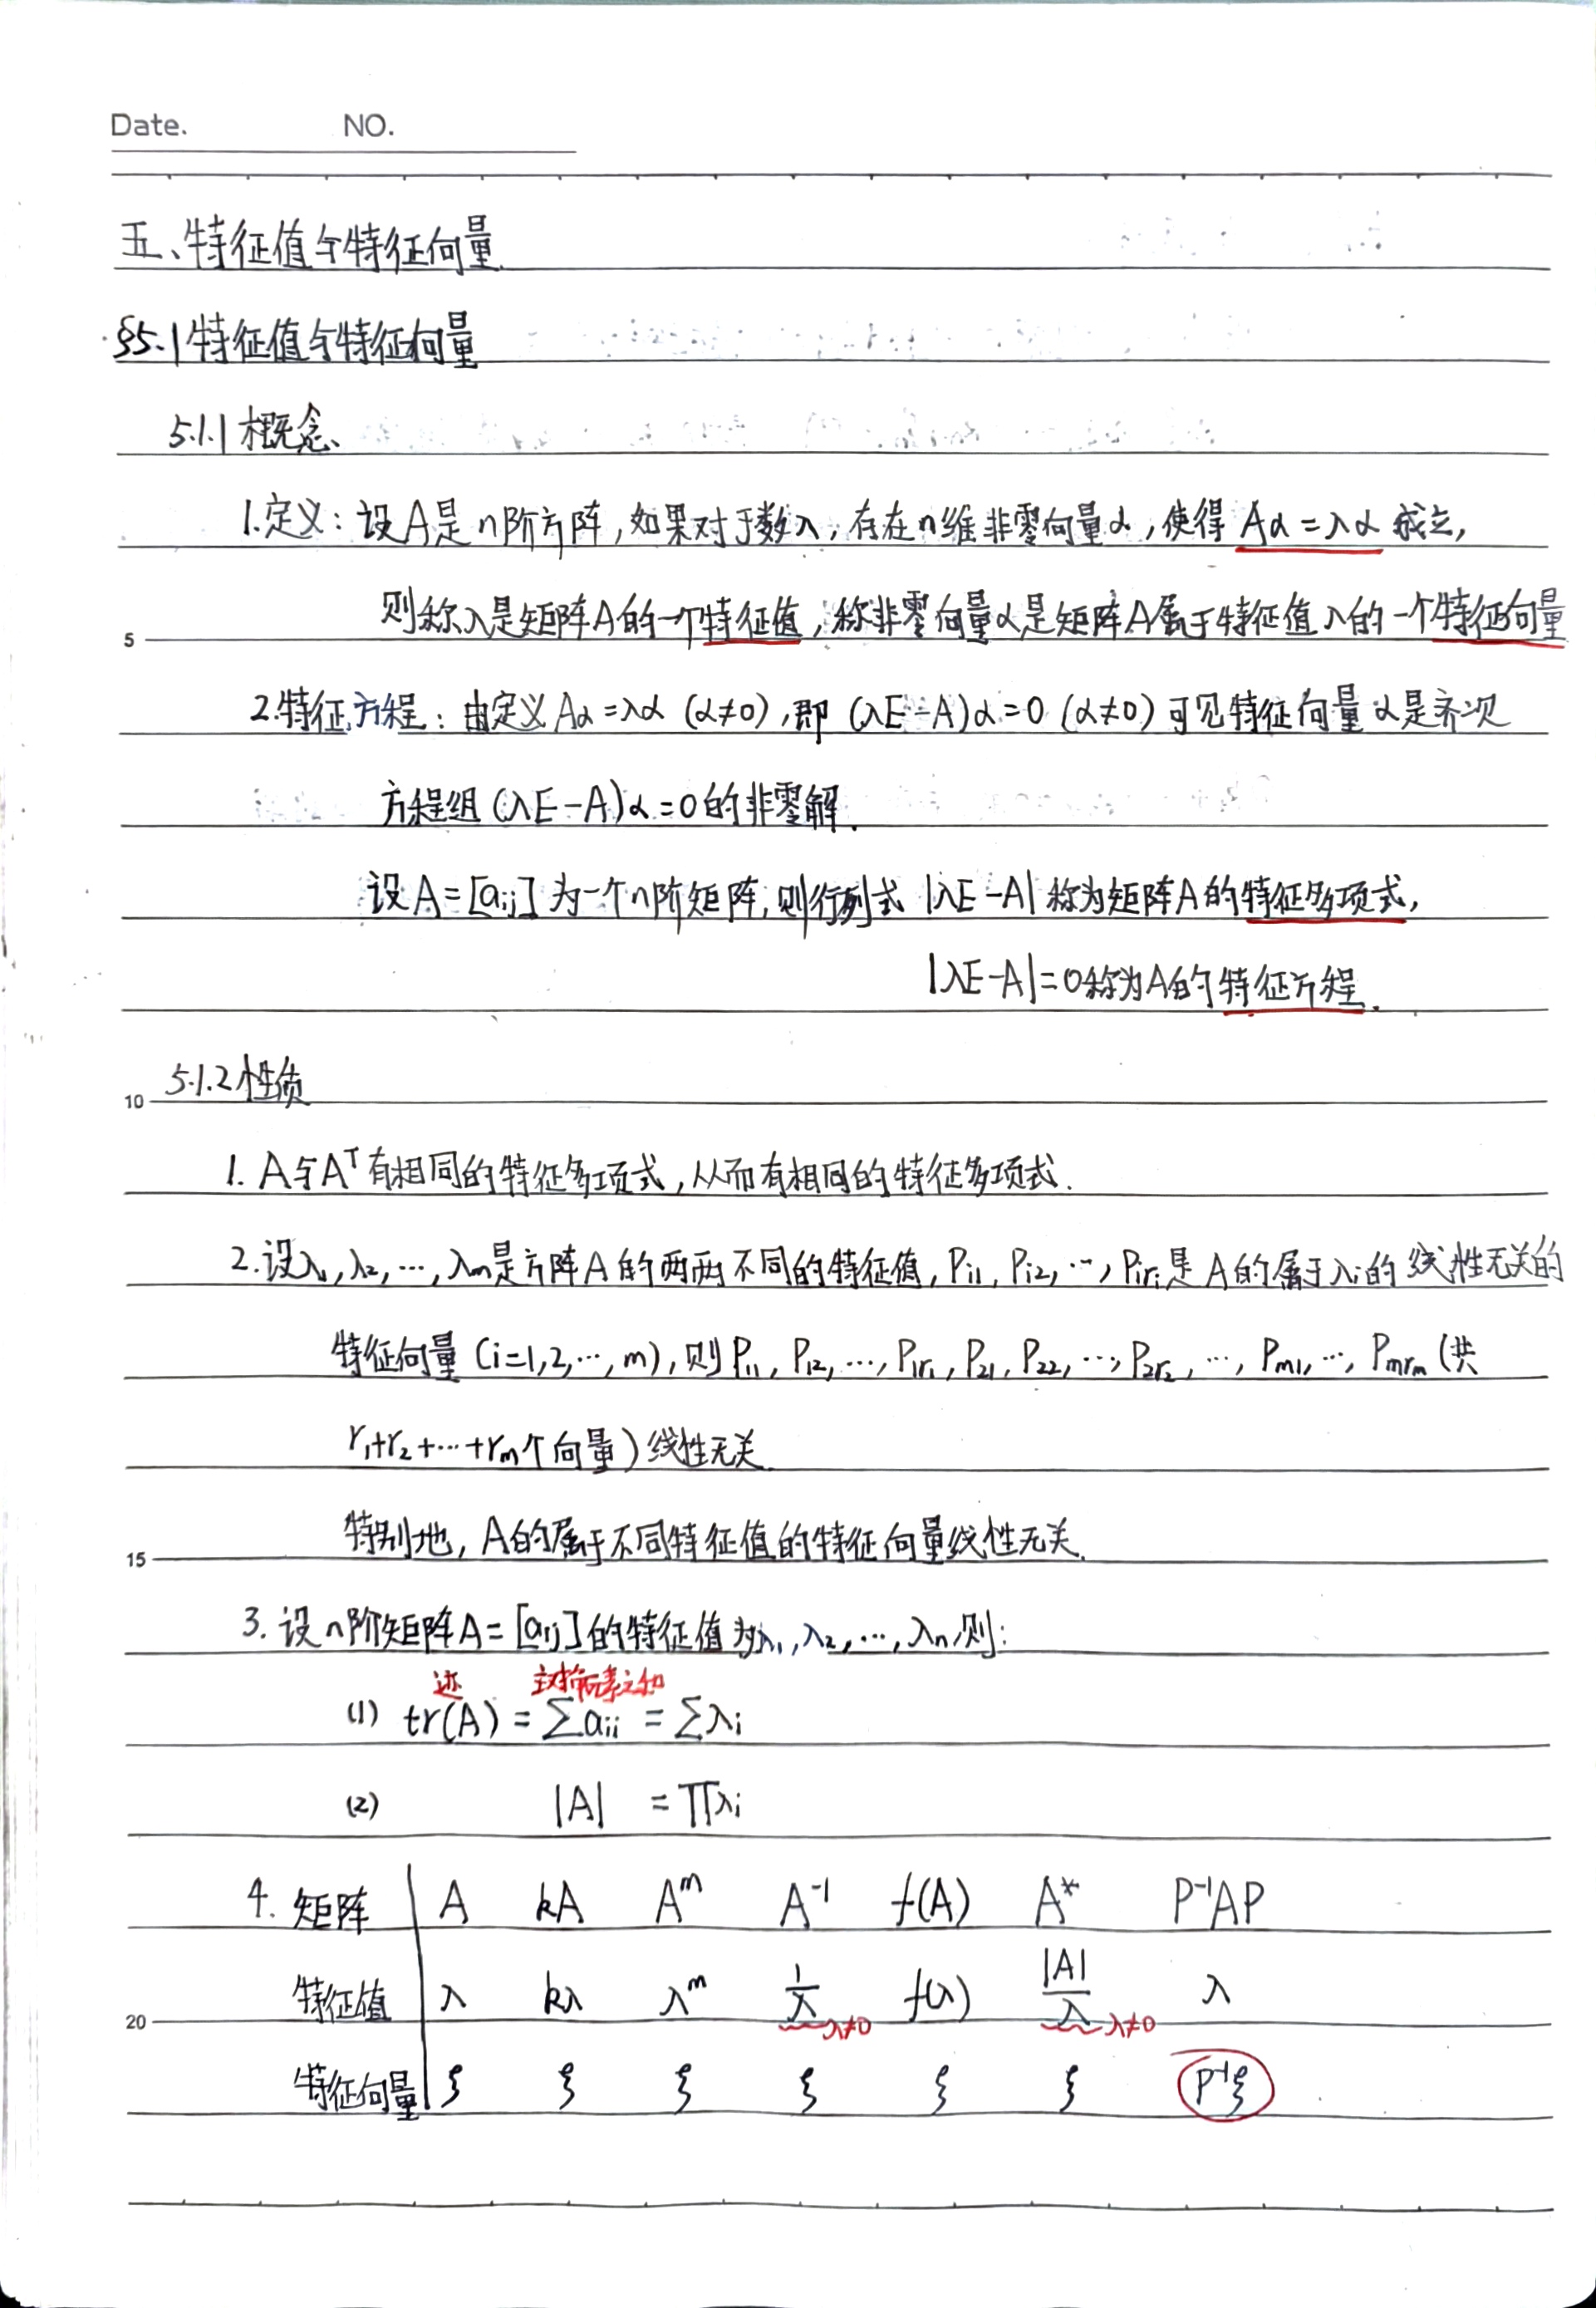 Date. NO.
五、特征值与特征向量.
§5.1特征值与特征向量
5.1.1 概念、
1.定义：设A是n阶方阵，如果对于数λ，存在n维非零向量α，使得 Aα=λα 成立，
则称λ是矩阵A的一个特征值，称非零向量α是矩阵A属于特征值λ的一个特征向量
5
2.特征方程：由定义Aα=λα (α≠0)，即 (λE-A)α=0 (α≠0) 可见特征向量α是齐次
方程组(λE-A)α=0的非零解.
设A=[aij] 为一个n阶矩阵，则行列式 |λE-A| 称为矩阵A的特征多项式，
|λE-A|=0称为A的特征方程.
5.1.2 性质
10
1. A与Aᵀ有相同的特征多项式，从而有相同的特征多项式.
2.设λ₁，λ₂，…，λm是方阵A的两两不同的特征值，Pi1，Pi2，…，Piri是A的属于λi的线性无关的
特征向量(i=1,2,…,m)，则P11，P12，…，P1r1，P21，P22，…，P2r2，…，Pm1，…，Pmrm (共
r1+r2+…+rm个向量)线性无关.
特别地，A的属于不同特征值的特征向量线性无关.
15
3. 设n阶矩阵A=[aij]的特征值为λ1，λ2，…，λn，则：
迹 主对角元素之和
(1) tr(A) = ∑aii = ∑λi
(2) |A| = ∏λi
4. 矩阵 A kA Aᵐ A⁻¹ f(A) A* P⁻¹AP
特征值 λ kλ λᵐ 1/λ λ≠0 f(λ) |A|/λ λ≠0 λ
20
特征向量 ξ ξ ξ ξ ξ ξ P⁻¹ξ